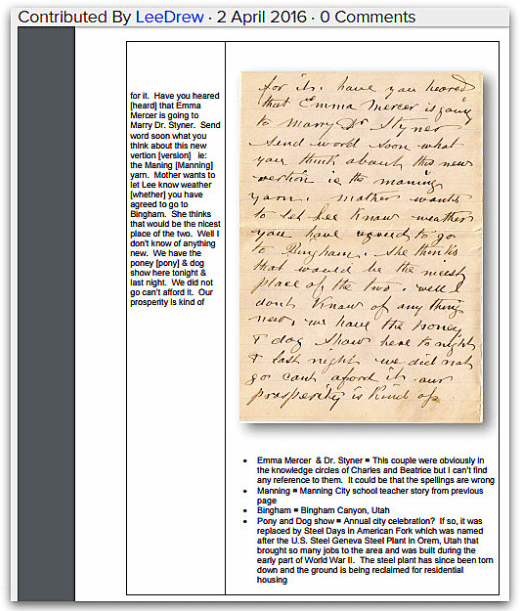 Contributed By LeeDrew · 2 April 2016 · 0 Comments
for it. Have you heared
[heard] that Emma
Mercer is going to
Marry Dr. Styner. Send
word soon what you
think about this new
vertion [version] ie:
the Maning [Manning]
yarn. Mother wants to
let Lee know weather
[whether] you have
agreed to go to
Bingham. She thinks
that would be the nicest
place of the two. Well I
don't know of anything
new. We have the
poney [pony] & dog
show here tonight &
last night. We did not
go can't afford it. Our
prosperity is kind of
for it. have you heared
that Emma Mercer is going
to marry Dr Styner
Send word soon what
you think about this new
vertion ie the maning
yarn. mother wants
to let Lee know weather
you have agreed to go
to Bingham. She thinks
that would be the nicest
place of the two. well I
dont know of any thing
new, we have the poney
& dog show here to night
& last night we did not
go cant aford it. our
prosperity is kind of
• Emma Mercer & Dr. Styner = This couple were obviously in
the knowledge circles of Charles and Beatrice but I can't find
any reference to them. It could be that the spellings are wrong
• Manning = Manning City school teacher story from previous
page
• Bingham = Bingham Canyon, Utah
• Pony and Dog show = Annual city celebration? If so, it was
replaced by Steel Days in American Fork which was named
after the U.S. Steel Geneva Steel Plant in Orem, Utah that
brought so many jobs to the area and was built during the
early part of World War II. The steel plant has since been torn
down and the ground is being reclaimed for residential
housing